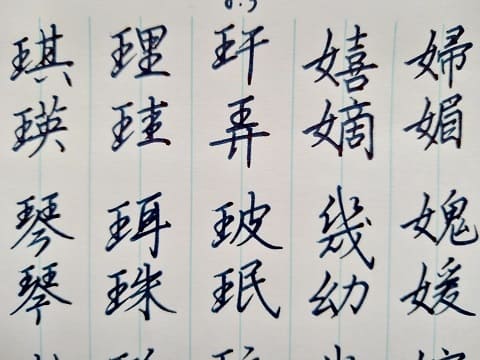 婦媚媿媛
嬉嫡幾幼
玕弄玻珉
理珪珥珠
琪瑛琴琴